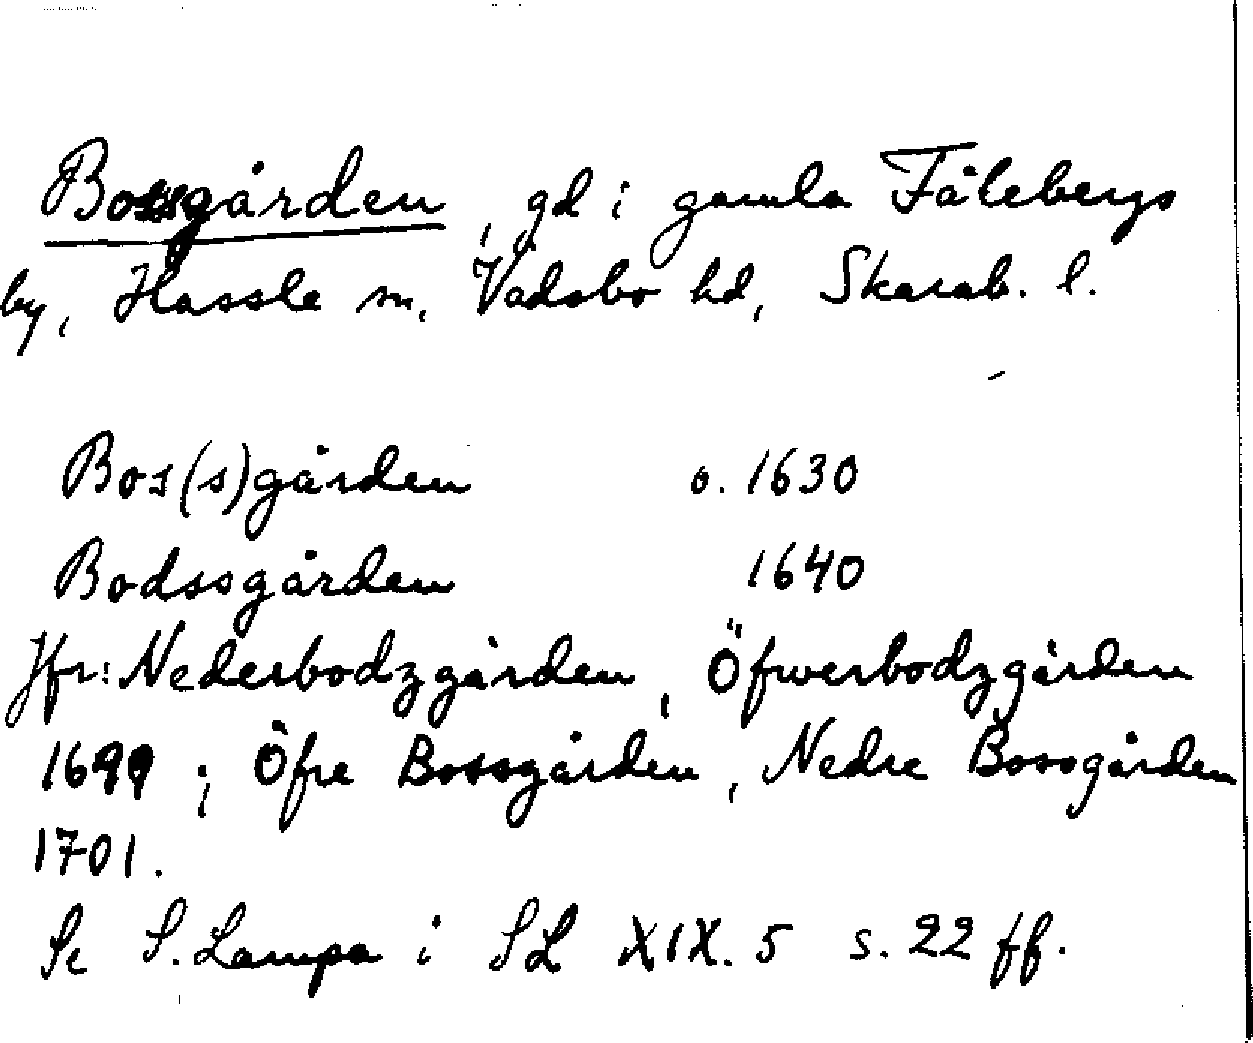 Bossgården, gd i gamla Fälebergs
by, Hassle sn, Vadsbo hd, Skarab. l.
Bos(s)gården o. 1630
Bodssgården 1640
Jfr: Nederbodzgården, Öfwerbodzgården
1699; Öfre Bossgården, Nedre Bossgården
1701.
Se S. Lampa i SL XIX. 5 s. 22 ff.